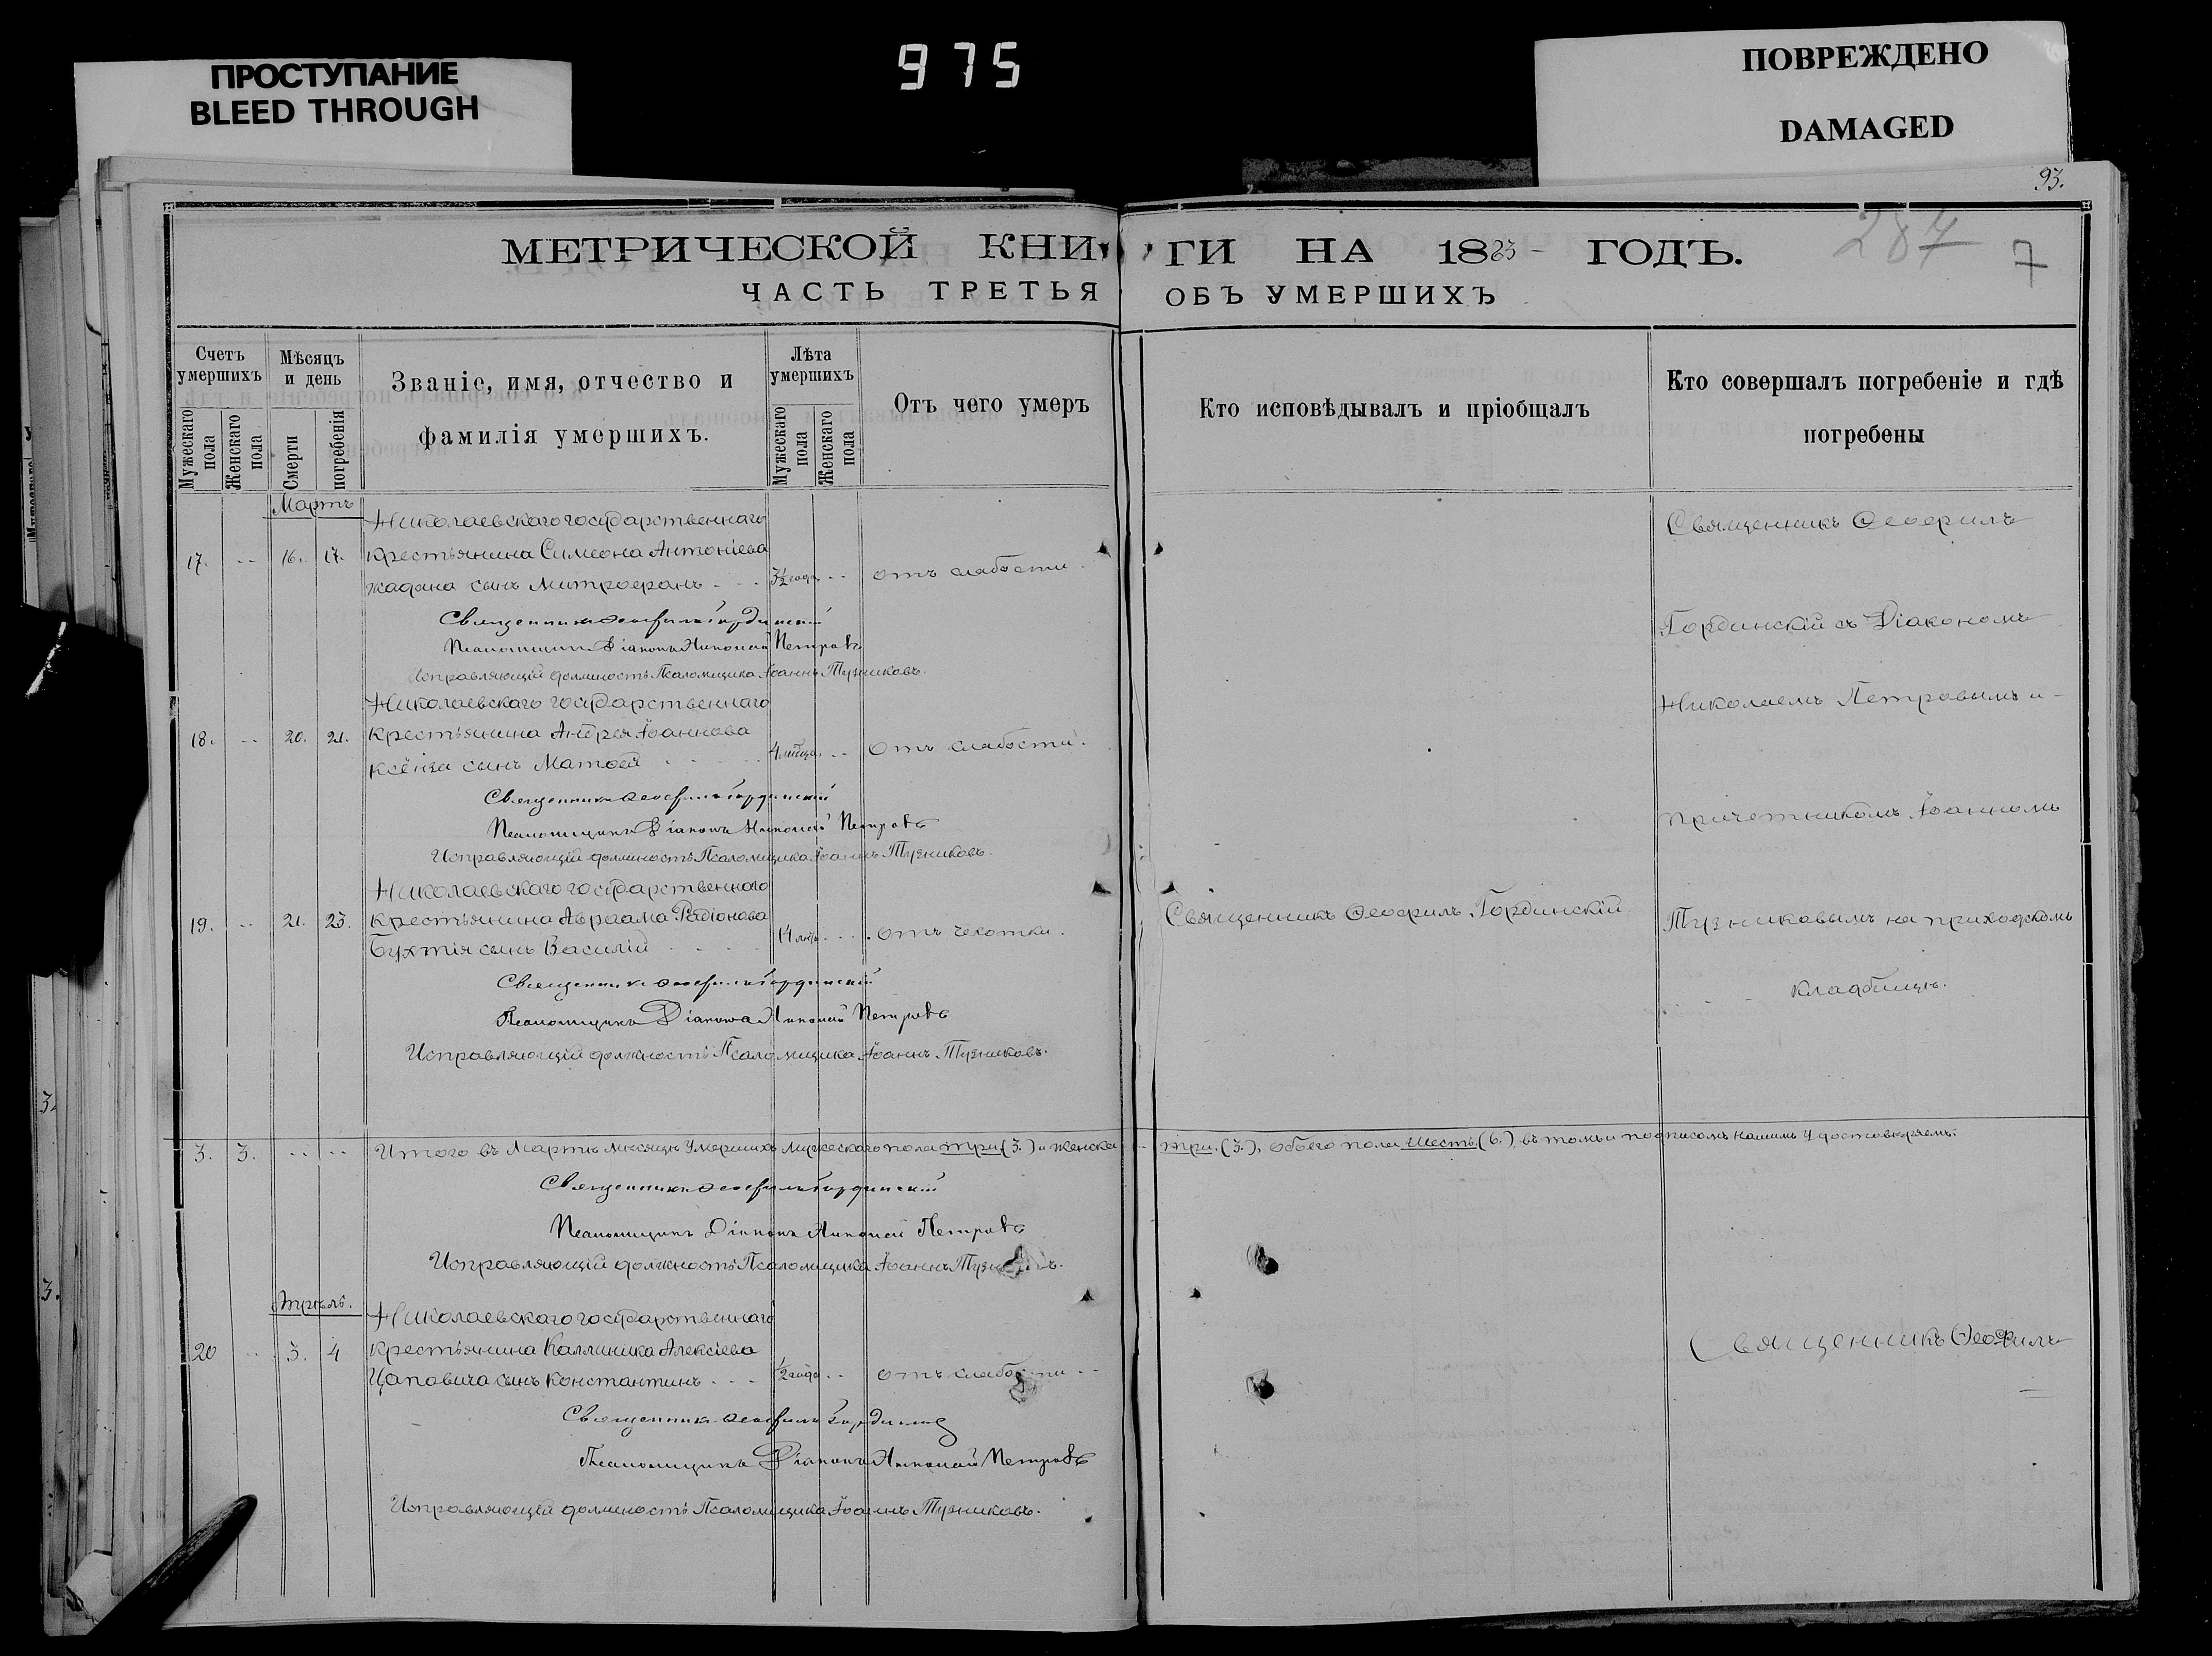 975
ПРОСТУПАНИЕ
BLEED THROUGH
ПОВРЕЖДЕНО
DAMAGED
93.
287
7
МЕТРИЧЕСКОЙ КНИГИ НА 1883 ГОДЪ.
ЧАСТЬ ТРЕТЬЯ ОБЪ УМЕРШИХЪ
Счетъ умершихъ
Мужескаго пола
Женскаго пола
Мѣсяцъ и день
Смерти
погребенія
Званіе, имя, отчество и
фамилія умершихъ.
Лѣта умершихъ
Мужескаго пола
Женскаго пола
Отъ чего умеръ
Кто исповѣдывалъ и пріобщалъ
Кто совершалъ погребеніе и гдѣ
погребены
Мартъ
Николаевскаго государственнаго
17. -- 16. 17. крестьянина Симеона Антоніева
Жадана сынъ Митрофанъ - - - 3½ года -- отъ слабости.
Священникъ Ѳеофилъ Гординскій
Псаломщикъ Діаконъ Николай Петровъ
Исправляющій должность Псаломщика Іоаннъ Тузниковъ.
Николаевскаго государственнаго
18. -- 20. 21. крестьянина Андрея Іоаннова
Ксёнза сынъ Матѳей - - - 4 мѣсяца -- Отъ слабости.
Священникъ Ѳеофилъ Гординскій
Псаломщикъ Діаконъ Николай Петровъ
Исправляющій должность Псаломщика Іоаннъ Тузниковъ.
Николаевскаго государственнаго
19. -- 21. 23. крестьянина Авраама Радіонова
Бухтія сынъ Василій - - - 14 лѣтъ -- отъ чехотки.
Священникъ Ѳеофилъ Гординскій
Священникъ Ѳеофилъ Гординскій
Псаломщикъ Діаконъ Николай Петровъ
Исправляющій должность Псаломщика Іоаннъ Тузниковъ.
Священникъ Ѳеофилъ
Гординскій съ Діакономъ
Николаемъ Петровымъ и -
причетникомъ Іоанномъ
Тузниковымъ на приходскомъ
кладбищѣ.
3. 3. -- -- Итого въ Мартѣ мѣсяцѣ умершихъ мужескаго пола три (3.) и женска -- три. (3.), обоего пола шесть. (6.) въ томъ и подписомъ нашимъ удостовѣряемъ.
Священникъ Ѳеофилъ Гординскій
Псаломщикъ Діаконъ Николай Петровъ
Исправляющій должность Псаломщика Іоаннъ
Апрѣль.
Николаевскаго государственнаго
20 -- 3. 4 крестьянина Каллиника Алексіева
Цаповича сынъ Константинъ - - - ½ года -- отъ слабости --
Священникъ Ѳеофилъ
Священникъ Ѳеофилъ
Псаломщикъ Діаконъ Николай Петровъ
Исправляющій должность Псаломщика Іоаннъ Тузниковъ.
3.
3.